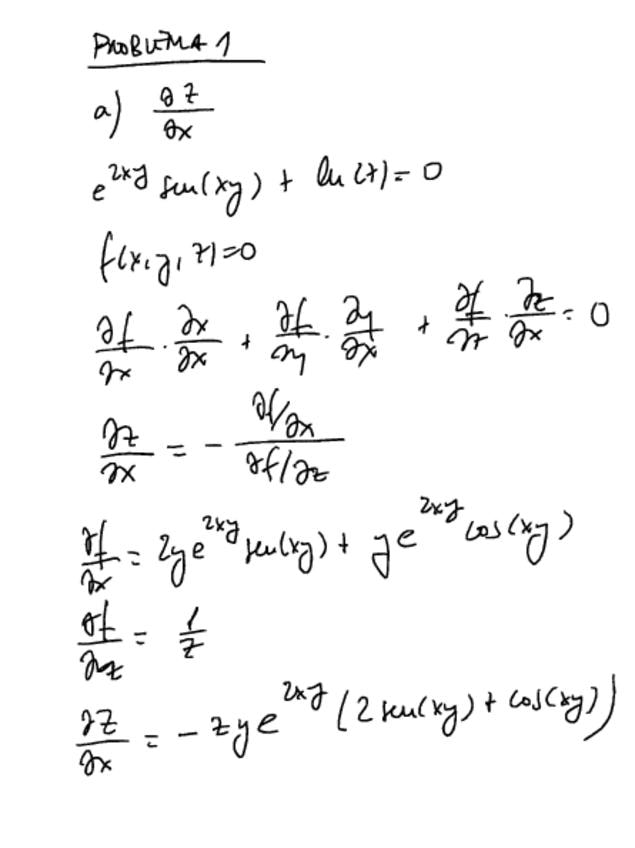 PROBLEMA 1
a) ∂z/∂x
e^{2xy} sen(xy) + ln(z) = 0
f(x, y, z) = 0
∂f/∂x · ∂x/∂x + ∂f/∂y · ∂y/∂x + ∂f/∂z · ∂z/∂x = 0
∂z/∂x = - (∂f/∂x)/(∂f/∂z)
∂f/∂x = 2ye^{2xy} sen(xy) + ye^{2xy} cos(xy)
∂f/∂z = 1/z
∂z/∂x = - zye^{2xy} (2 sen(xy) + cos(xy))